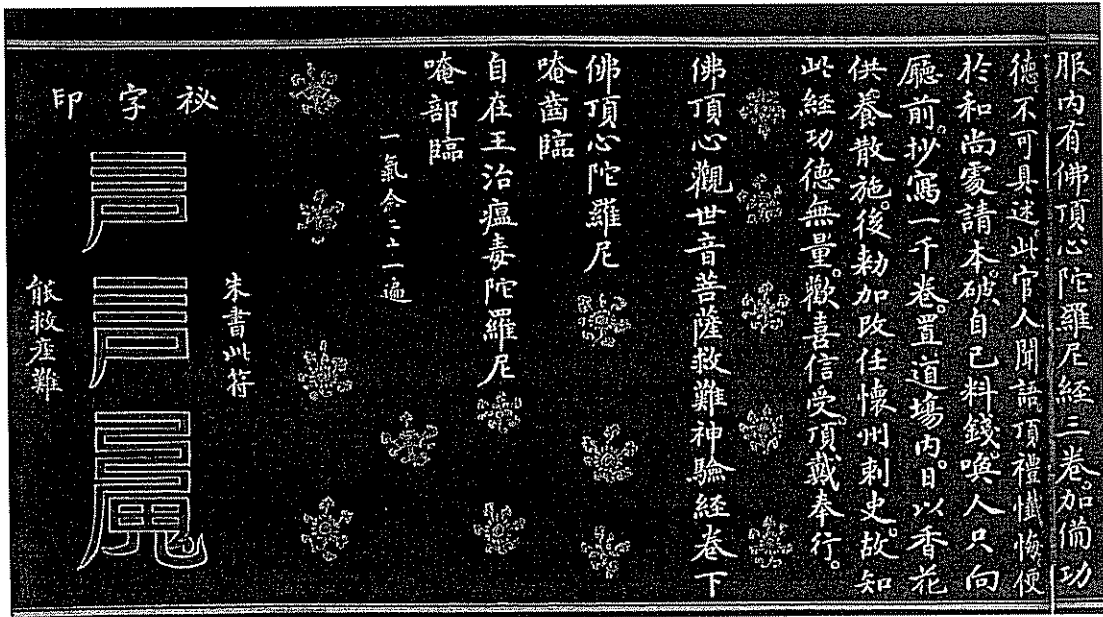 服内有佛頂心陀羅尼經三卷。加備功
德不可具述。此官人聞語頂禮懺悔便
於和尚處請本。破自己料錢。喚人只向
廳前。抄寫一千卷。置道場內。日以香花
供養散施。後勑加改任懷州刺史。故知
此經功德無量。歡喜信受。頂戴奉行。
佛頂心觀世音菩薩救難神驗經卷下
佛頂心陀羅尼
唵齒臨
自在王治瘟毒陀羅尼
唵部臨
一氣念二十一遍
祕字印
朱書此符
能救產難